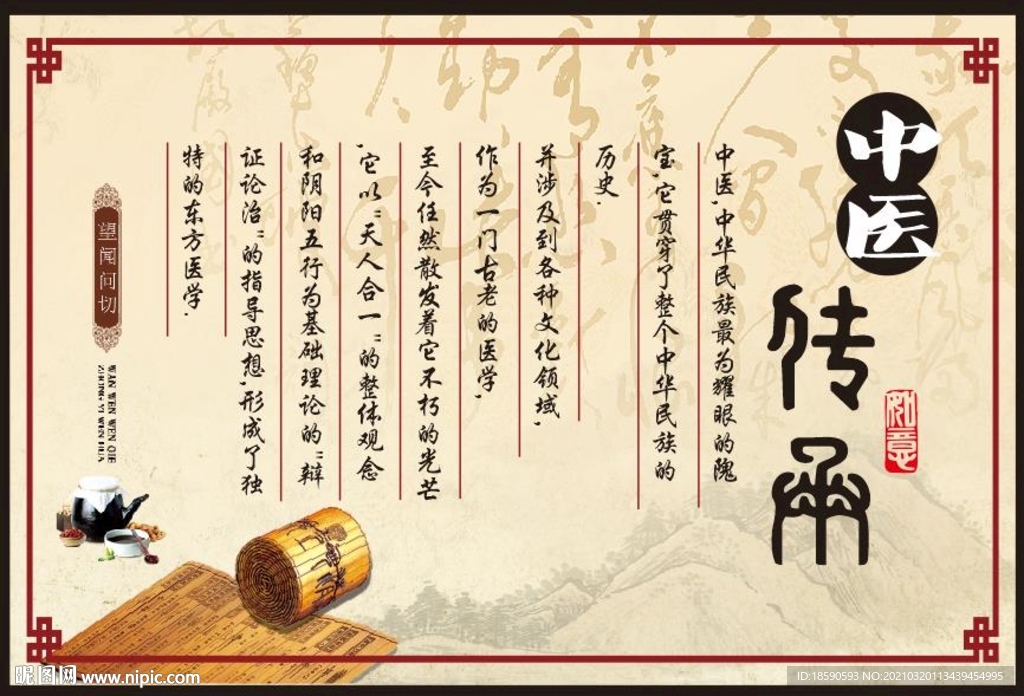 中医
传承
如意
中医,中华民族最为耀眼的瑰
宝,它贯穿了整个中华民族的
历史.
并涉及到各种文化领域,
作为一门古老的医学,
至今任然散发着它不朽的光芒
,它以"天人合一"的整体观念
和阴阳五行为基础理论的"辩
证论治"的指导思想,形成了独
特的东方医学.
望闻问切
WAN WEN WEN QIE
ZHONG YI WEN HUA
昵图网 www.nipic.com
ID:18590593 NO:20210320113439454995